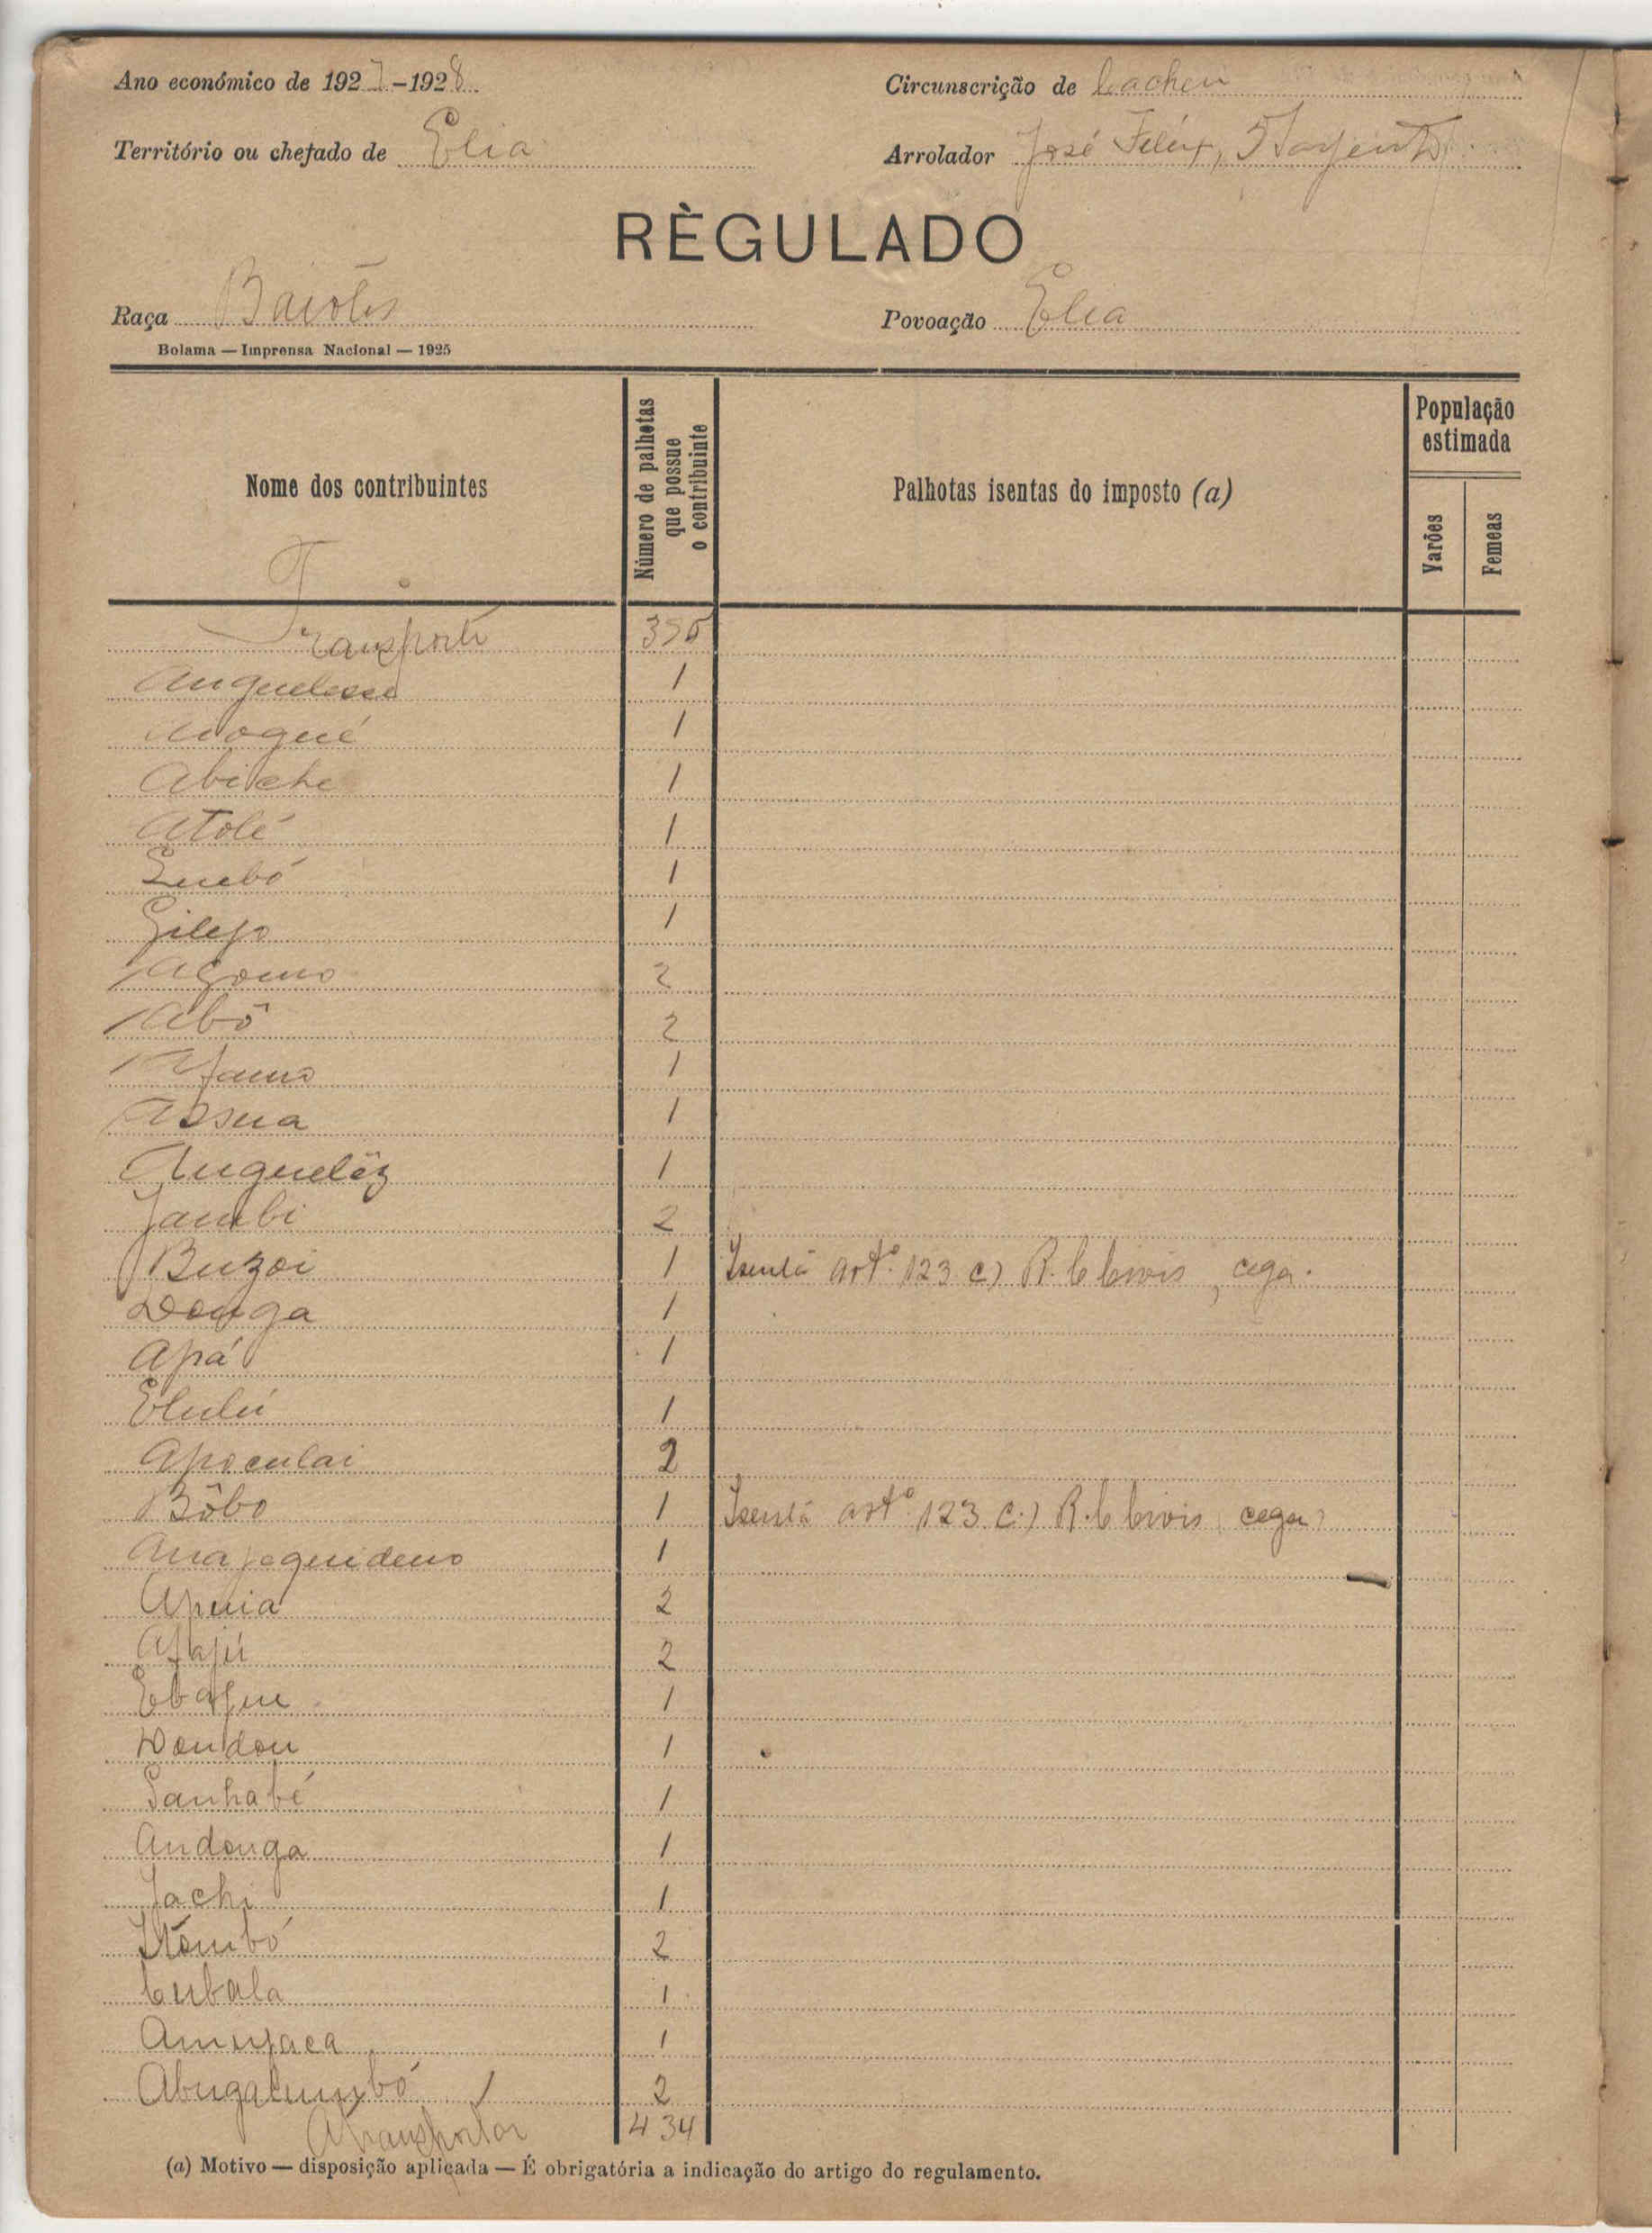 Ano económico de 1927-1928
Circunscrição de Cacheu
Território ou chefado de Elia
Arrolador José Felix,
RÈGULADO
Raça Baiotes
Povoação Elia
Bolama — Imprensa Nacional — 1925
Nome dos contribuintes
Número de palhotas que possue o contribuinte
Palhotas isentas do imposto (a)
População estimada
Varões
Femeas
Transporte
1
1
Abiche 1
Atolé 1
1
Gilejo 1
2
Abô 2
1
Assua 1
Anguelêz 1
Jambi 2
Buzoi 1 Isenta artº 123 c) R. C Civis, cega.
Donga 1
Apá 1
Elulú 1
Apoculai 2
Bôbo 1 Isenta artº 123 c) R. C Civis, cega
1
Apuia 2
2
1
Dondon 1
Sanhabé 1
Andonga 1
Jachi 1
2
Cubala 1
1
2
A transportar 434
(a) Motivo — disposição aplicada — É obrigatória a indicação do artigo do regulamento.